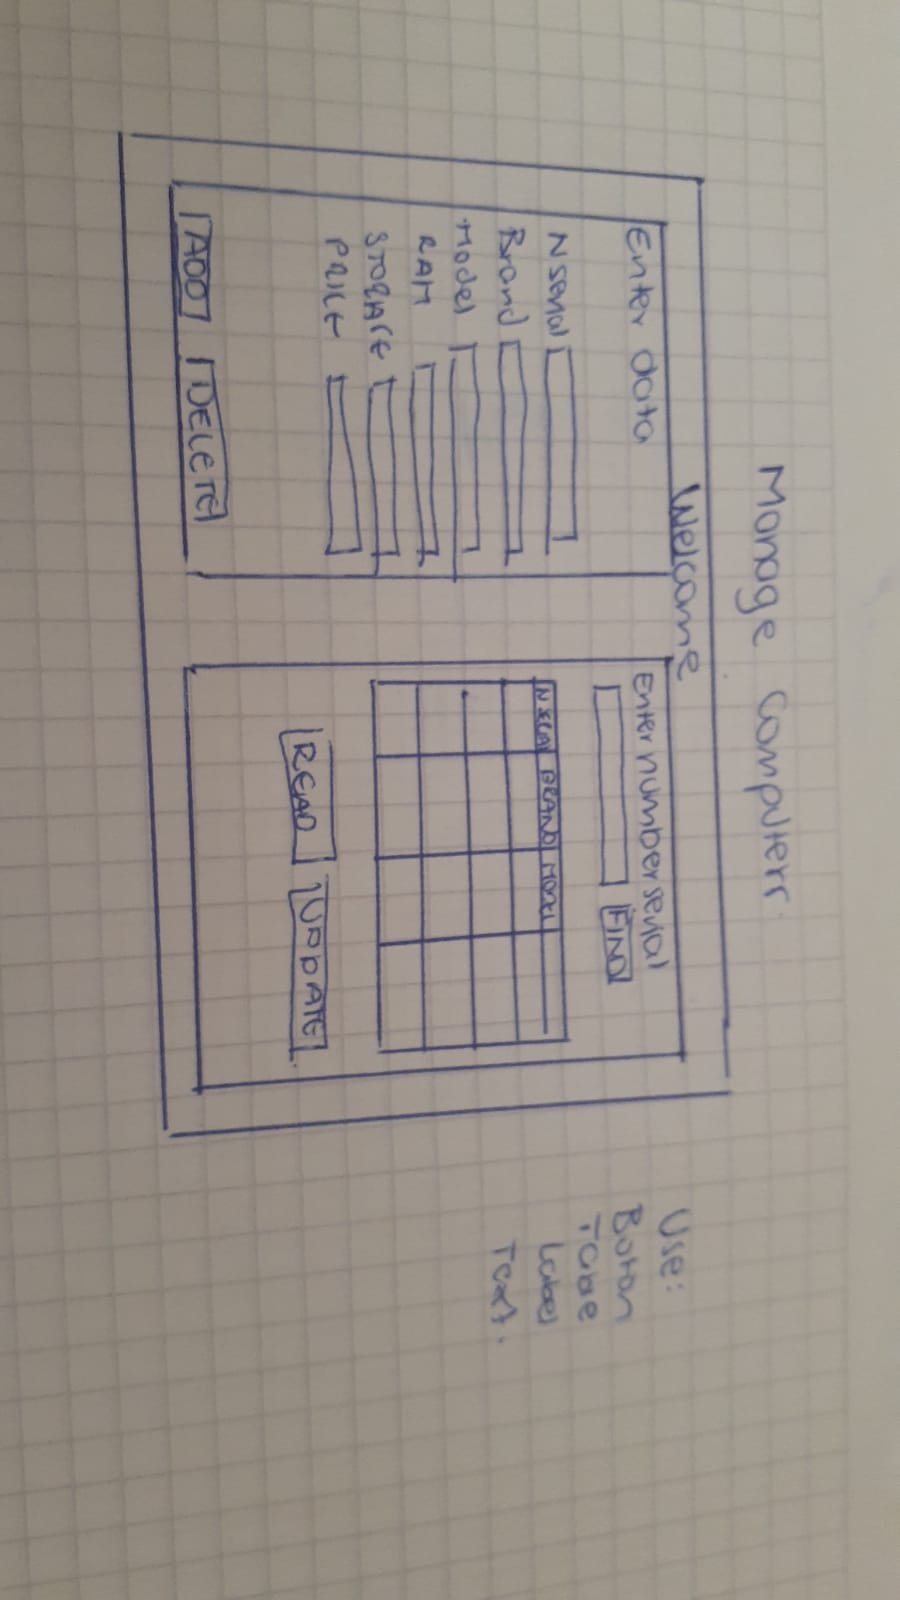 Manage Computerr.
Welcome
Enter data
N Serial
Brand
Model
RAM
STORAGE
PRICE
ADD DELETE
Enter number serial
FIND
N SERIAL BRAND MODEL
READ UPDATE
Use:
Boton
Table
Label
Text.